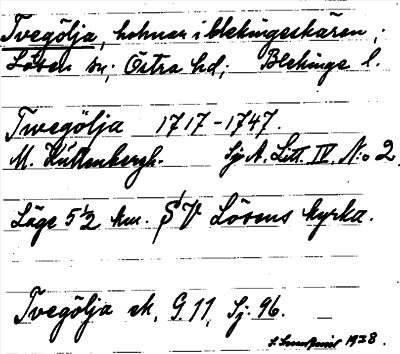 Tvegölja, holmar i blekingeskären;
Lösen sn; Östra hd; Blekinge l.
Tvegölja 1717-1747.
M. Kuttenbergh. Sj. A. Litt. IV. N:o 2
Läge 5½ km. SV Lösens kyrka.
Tvegölja sk. G. 11, Sj. 96.
1928.